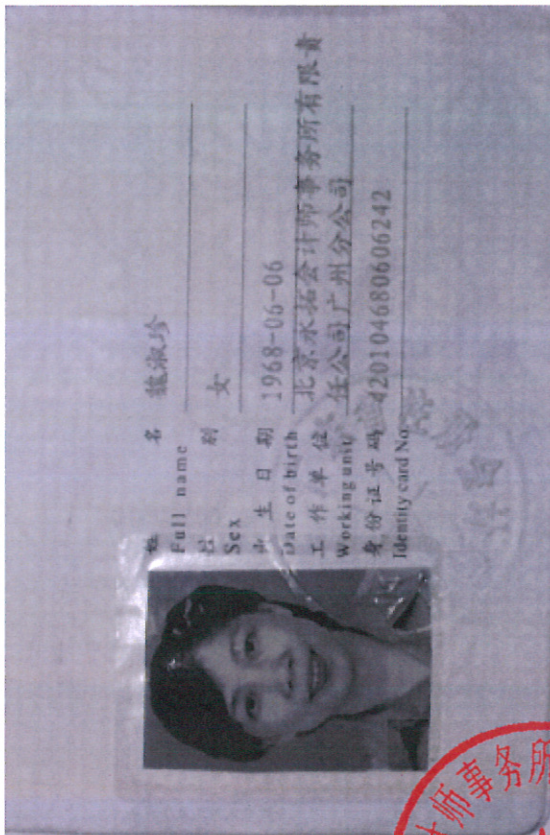 姓 名 魏淑珍
Full name
性 别 女
Sex
出 生 日 期 1968-06-06
Date of birth
工 作 单 位 北京永拓会计师事务所有限责
Working unit 任公司广州分公司
身 份 证 号 码 420104680606242
Identity card No.
师事务所